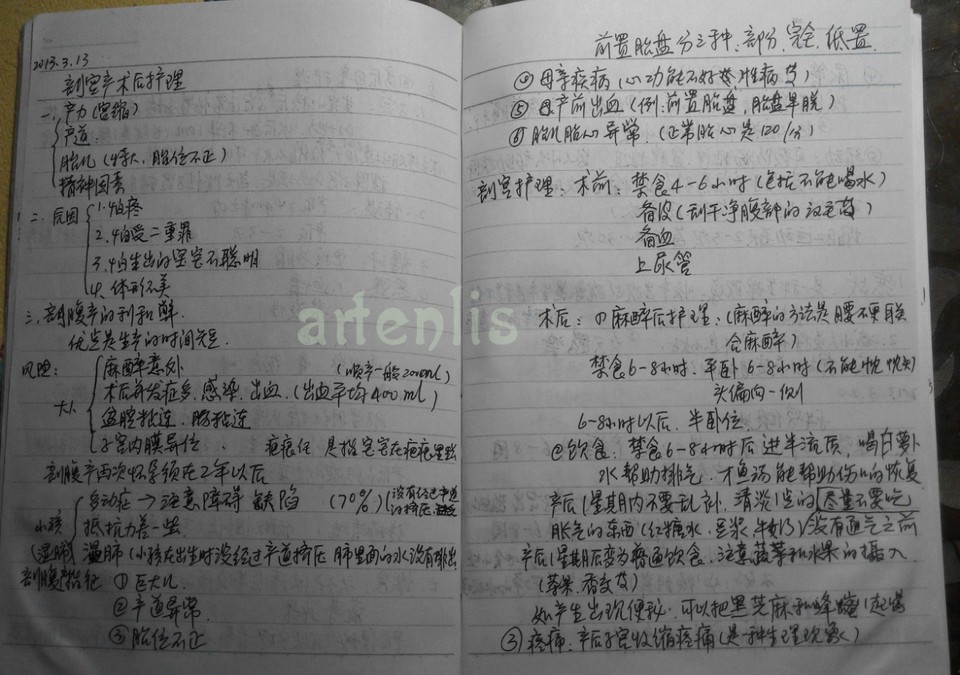 2013.3.13
剖宫产术后护理
一、产力(宫缩)
产道
胎儿(特大、胎位不正)
精神因素
二、原因 1.怕疼
2.怕受二重罪
3.怕生出的宝宝不聪明
4、体形不美
三、剖腹产的利和弊
优点是生产的时间短
风险:
大人
麻醉意外 (顺产一般200ml)
术后并发症多、感染、出血、(出血平均400ml)
盆腔粘连、肠粘连
子宫内膜异位、 疤痕妊 是指宝宝在疤痕里
剖腹产两次怀孕须在2年以后
小孩
多动症→注意障碍 缺陷 (70%)(没有经过产道的挤压
抵抗力差一些
(湿肺)湿肺(小孩在出生时没经过产道挤压 肺里面的水没有排出
剖腹产指征 ①巨大儿
②产道异常
③胎位不正
前置胎盘分三种、部份、完全、低置
④母亲疾病(心功能不好 性病等)
⑤母产前出血(例:前置胎盘、胎盘早脱)
⑥胎儿胎心异常、(正常胎心是120/分)
剖宫护理:术前:禁食4-6小时(包括不能喝水)
备皮(刮干净腹部的汗毛等)
备血
上尿管
术后:①麻醉后护理:(麻醉的方法是腰硬联
合麻醉)
禁食6-8小时、平卧6-8小时(不能枕枕头)
头偏向一侧
6-8小时以后、半卧位
②饮食:禁食6-8小时后进半流质,喝白萝卜
水帮助排气、才鱼汤能帮助伤口的恢复
产后1星期内不要乱补、清淡1点的 尽量不要吃
胀气的东西(红糖水、豆浆、牛奶)没有通气之前
产后1星期后变为普通饮食、注意蔬菜和水果的摄入
(苹果、香蕉等)
如产生出现便秘、可以把黑芝麻和蜂蜜1起喝
③疼痛:产后子宫收缩疼痛(是一种生理现象)
artenlis